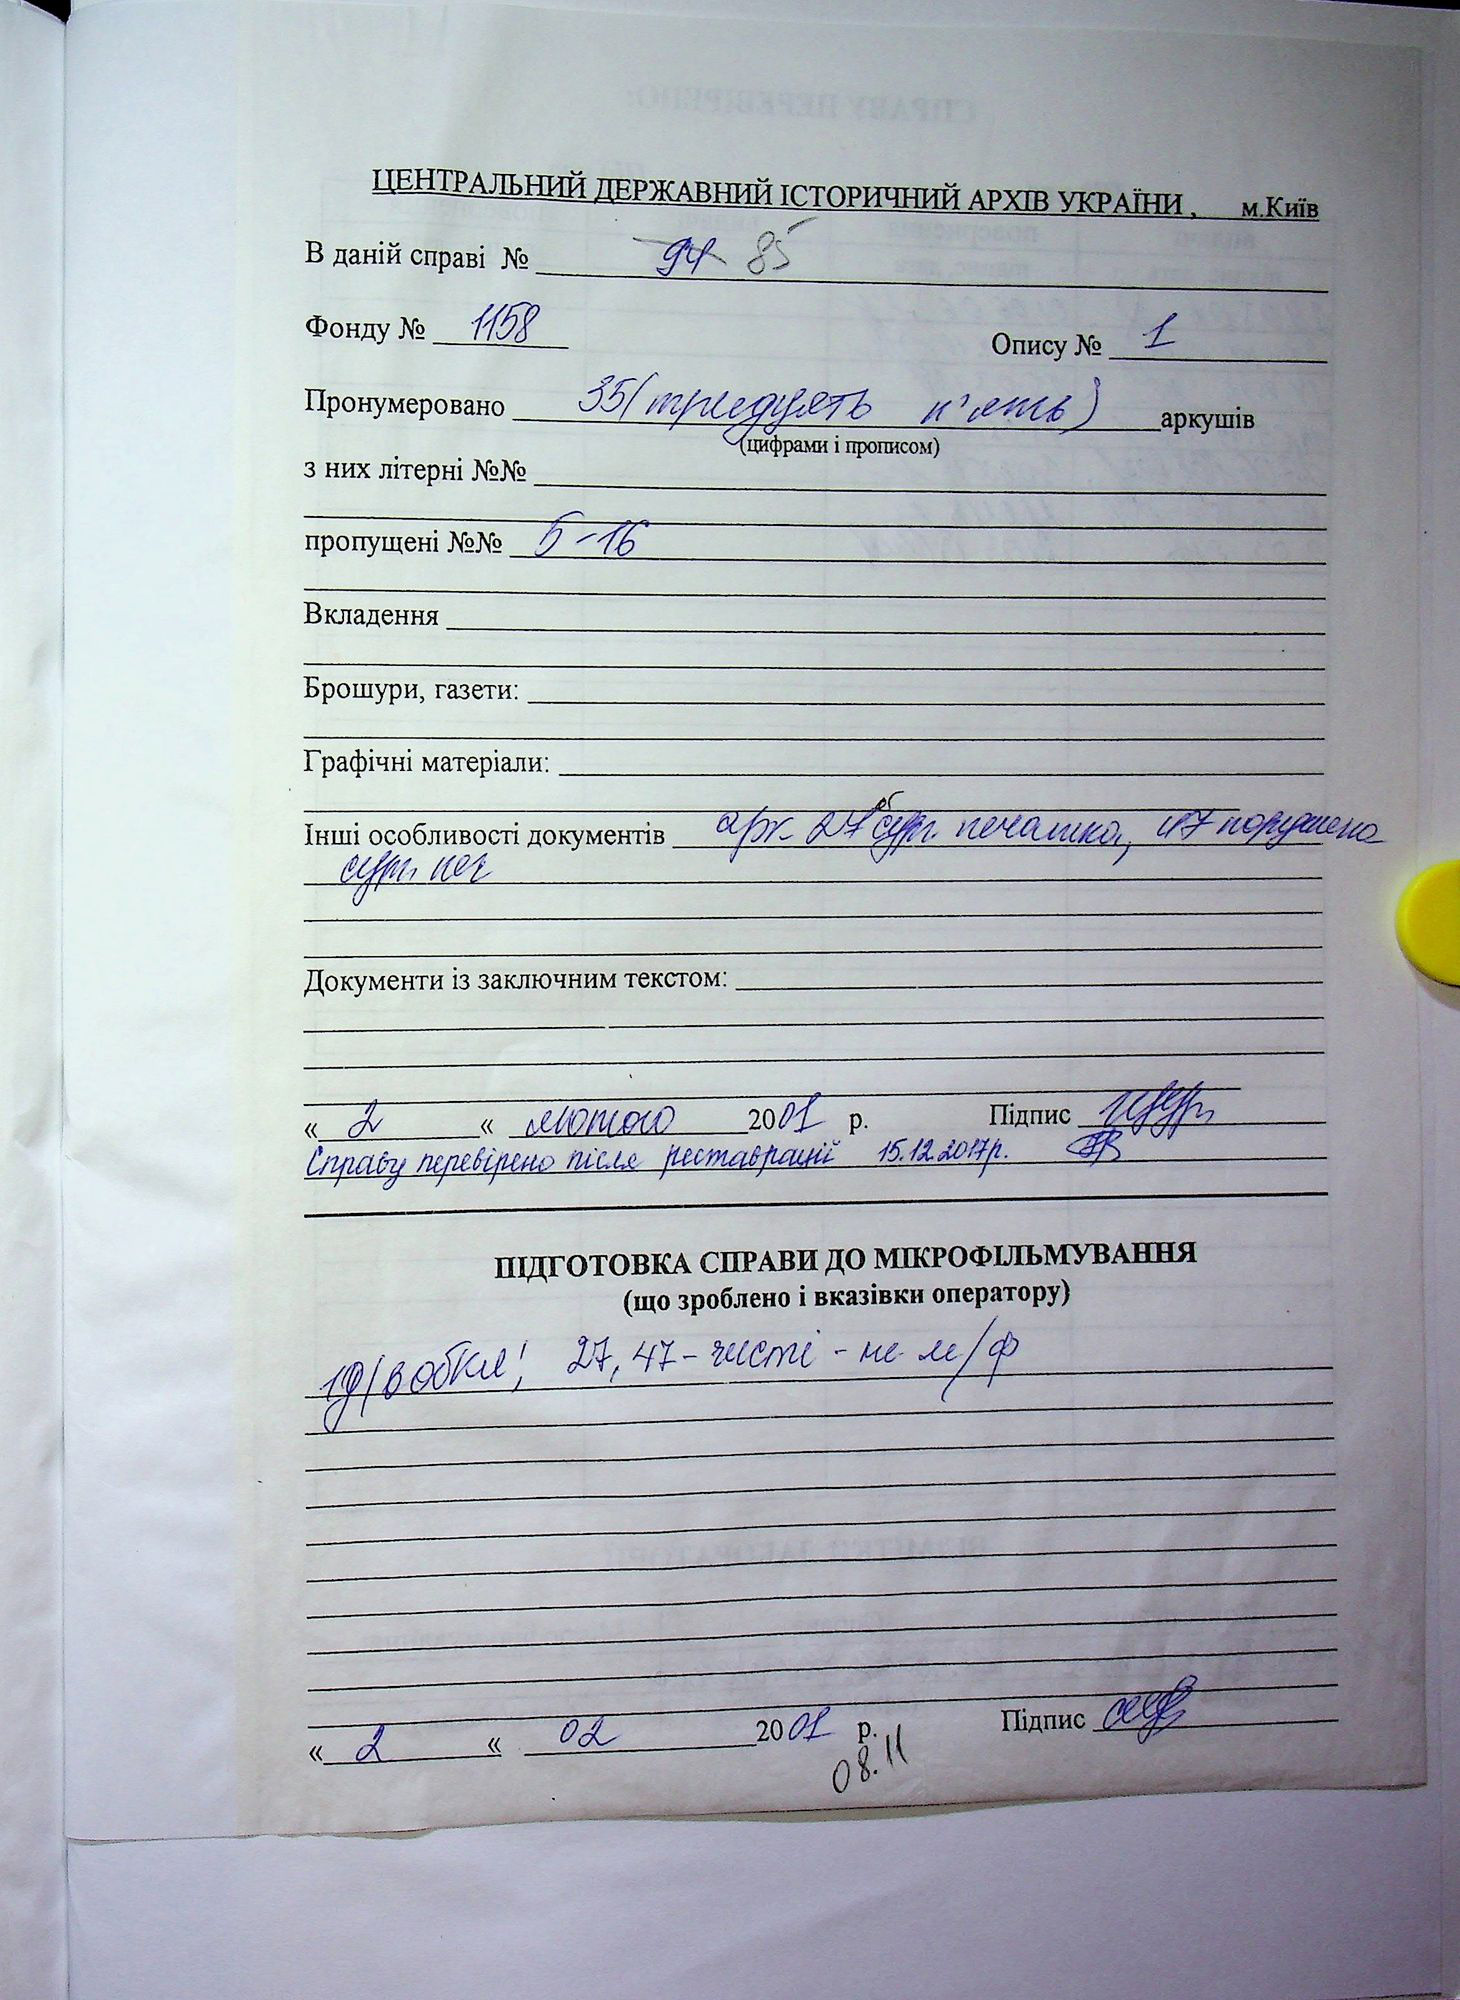 ЦЕНТРАЛЬНИЙ ДЕРЖАВНИЙ ІСТОРИЧНИЙ АРХІВ УКРАЇНИ, м.Київ
В даній справі № 94 85
Фонду № 1158 Опису № 1
Пронумеровано 35 (тридцять п'ять) аркушів
(цифрами і прописом)
з них літерні №№
пропущені №№ 5-16
Вкладення
Брошури, газети:
Графічні матеріали:
Інші особливості документів арк 27об сург. печатка, 47 порушена
сург. печ
Документи із заключним текстом:
« 2 « лютого 2001 р. Підпис
Справу перевірено після реставрації 15.12.2017р.
ПІДГОТОВКА СПРАВИ ДО МІКРОФІЛЬМУВАННЯ
(що зроблено і вказівки оператору)
27, 47 - чисті - не м/ф
« 2 « 02 2001 р. Підпис
08.11